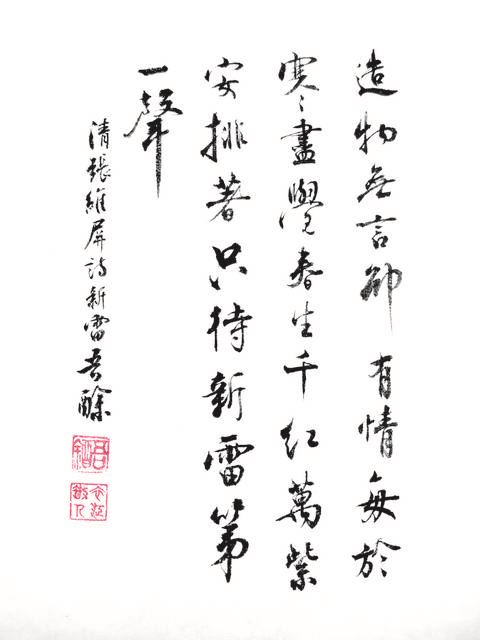 造物無言卻有情每於
寒盡覺春生千紅萬紫
安排著只待新雷第
一聲
清張維屏詩新雷吾酴